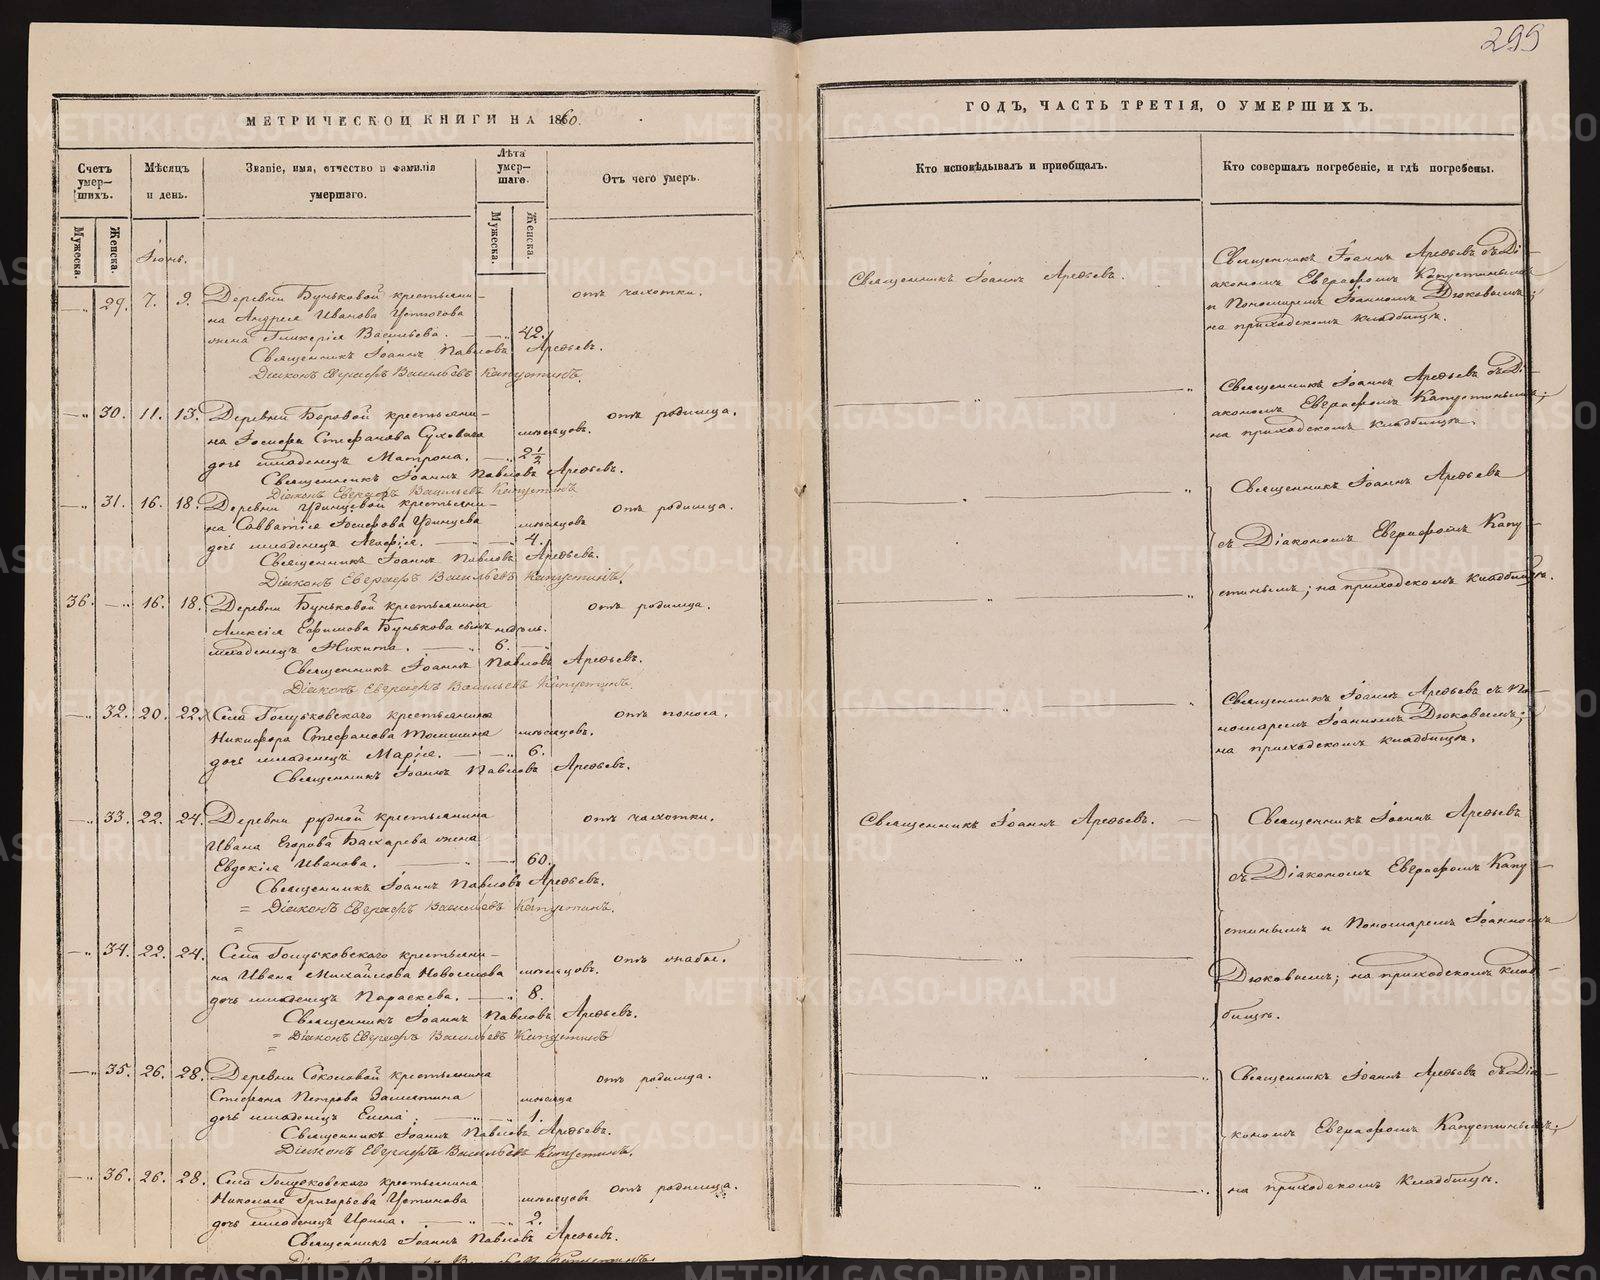 299
МЕТРИЧЕСКОЙ КНИГИ НА 1860.
Счетъ умер-шихъ.
Мужеска.
Женска.
Мѣсяцъ и день.
Званіе, имя, отчество и фамилія умершаго.
Лѣта умер-шаго.
Мужеска.
Женска.
Отъ чего умеръ.
Іюнь.
29. 7. 9. Деревни Буньковой крестьяни- отъ чахотки.
на Андрея Иванова Устюгова
жена Гликерія Васильева. 42.
Священникъ Іоаннъ Павловъ Арефьевъ.
Діаконъ Евграфъ Васильевъ Капустинъ.
30. 11. 13. Деревни Боровой крестьяни- отъ родимца.
на Іосифа Стефанова Суховa мѣсяцовъ.
дочь младенецъ Матрона. 2 1/2
Священникъ Іоаннъ Павловъ Арефьевъ.
Діаконъ Евграфъ Васильевъ Капустинъ
31. 16. 18. Деревни Удинцевой крестьяни- отъ родимца.
на Савватія Іосифова Удинцева мѣсяцовъ
дочь младенецъ Агафія. 4.
Священникъ Іоаннъ Павловъ Арефьевъ.
Діаконъ Евграфъ Васильевъ Капустинъ.
36. 16. 18. Деревни Буньковой крестьянина отъ родимца.
Алексія Ефимова Бунькова сынъ недѣль.
младенецъ Никита. 6.
Священникъ Іоаннъ Павловъ Арефьевъ.
Діаконъ Евграфъ Васильевъ Капустинъ.
32. 20. 22. Села Голубковскаго крестьянина отъ поноса.
Никифора Стефанова Томшина мѣсяцовъ.
дочь младенецъ Марія. 6.
Священникъ Іоаннъ Павловъ Арефьевъ.
33. 22. 24. Деревни рудной крестьянина отъ чахотки.
Ивана Егорова жена
Евдокія Иванова. 60.
Священникъ Іоаннъ Павловъ Арефьевъ.
= Діаконъ Евграфъ Васильевъ Капустинъ.
34. 22. 24. Села Голубковскаго крестьяни-
на Ивана Михайлова Новоселова мѣсяцовъ.
дочь младенецъ Параскева. 8.
Священникъ Іоаннъ Павловъ Арефьевъ.
= Діаконъ Евграфъ Васильевъ Капустинъ
35. 26. 28. Деревни Соколовой крестьянина отъ родимца.
Стефана Петрова Замятина мѣсяца
дочь младенецъ Елена. 1.
Священникъ Іоаннъ Павловъ Арефьевъ.
Діаконъ Евграфъ Васильевъ Капустинъ.
36. 26. 28. Села Голубковскаго крестьянина отъ родимца.
Николая Григорьева Устинова мѣсяцовъ
дочь младенецъ Ирина. 2.
Священникъ Іоаннъ Павловъ Арефьевъ.
Діаконъ Евграфъ Васильевъ Капустинъ.
ГОДЪ, ЧАСТЬ ТРЕТІЯ, О УМЕРШИХЪ.
Кто исповѣдывалъ и пріобщалъ.
Кто совершалъ погребеніе, и гдѣ погребены.
Священникъ Іоаннъ Арефьевъ.
Священникъ Іоаннъ Арефьевъ съ Ді-
акономъ Евграфомъ Капустинымъ
и Пономаремъ Іоанномъ Дюковымъ;
на приходскомъ кладбищѣ.
Священникъ Іоаннъ Арефьевъ съ Ді-
акономъ Евграфомъ Капустинымъ;
на приходскомъ кладбищѣ.
Священникъ Іоаннъ Арефьевъ
съ Діакономъ Евграфомъ Капу-
стинымъ; на приходскомъ кладбищѣ.
Священникъ Іоаннъ Арефьевъ съ По-
номаремъ Іоанномъ Дюковымъ;
на приходскомъ кладбищѣ.
Священникъ Іоаннъ Арефьевъ.
Священникъ Іоаннъ Арефьевъ
съ Діакономъ Евграфомъ Капу-
стинымъ и Пономаремъ Іоанномъ
Дюковымъ; на приходскомъ клад-
бищѣ.
Священникъ Іоаннъ Арефьевъ съ Діа-
кономъ Евграфомъ Капустинымъ;
на приходскомъ кладбищѣ.
METRIKI.GASO-URAL.RU